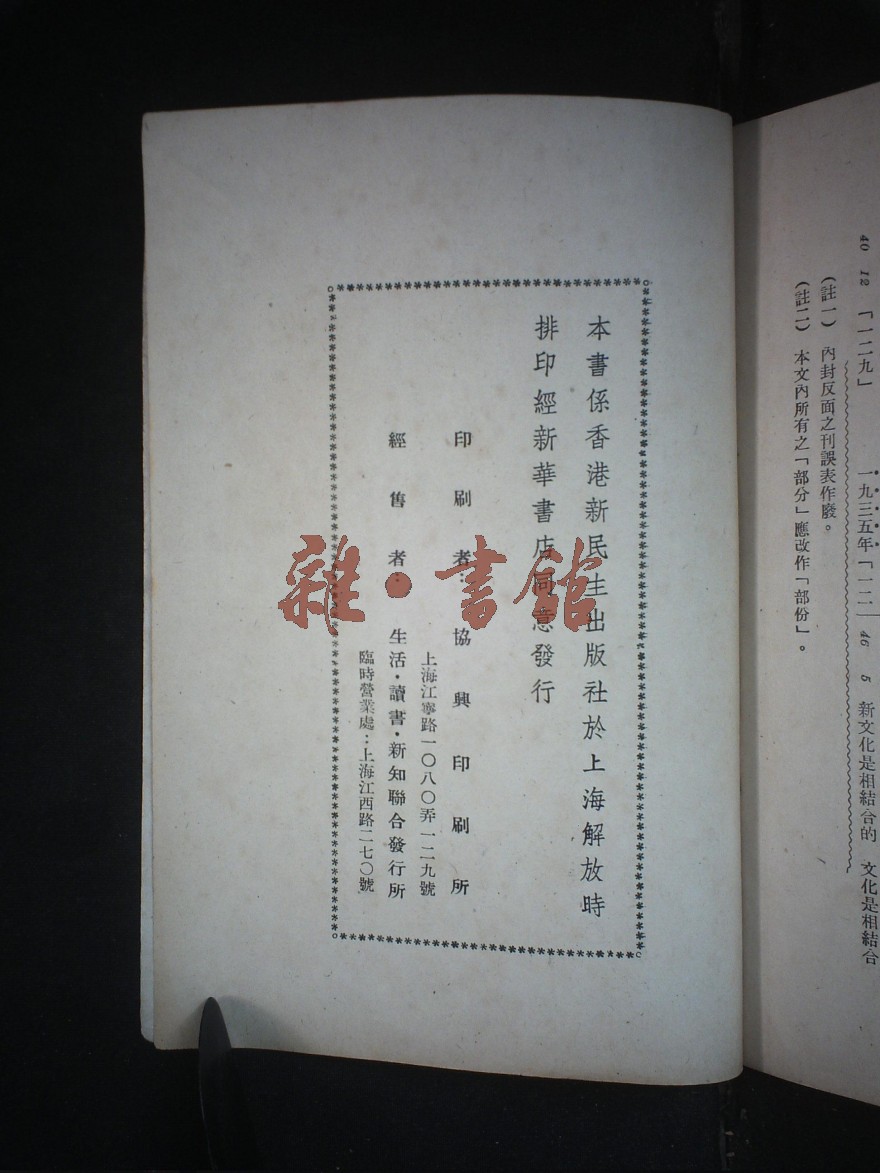 40 12 「一二九」 一九三五年「一二 46 5 新文化是相結合的 文化是相結合
(註一) 內封反面之刊誤表作廢。
(註二) 本文內所有之「部分」應改作「部份」。
本書係香港新民主出版社於上海解放時
排印經新華書店同意發行
印刷者：協興印刷所
上海江寧路一〇八〇弄一二九號
經售者：生活·讀書·新知聯合發行所
臨時營業處：上海江西路二七〇號
雜·書館